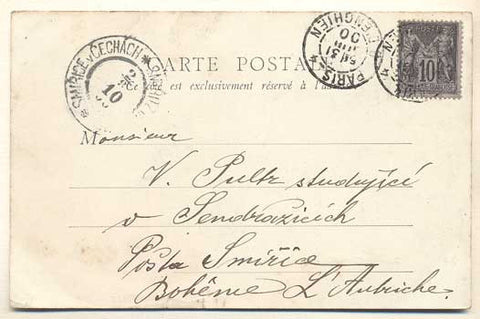 CARTE POSTALE
Ce côté est exclusivement réservé à l'adresse
SMIŘICE V ČECHÁCH
10
PARIS
ENGHIEN
00
10
Monsieur
V. Pultr studující
v Sendražicích
Pošta Smiřice
Bohême L'Autriche.